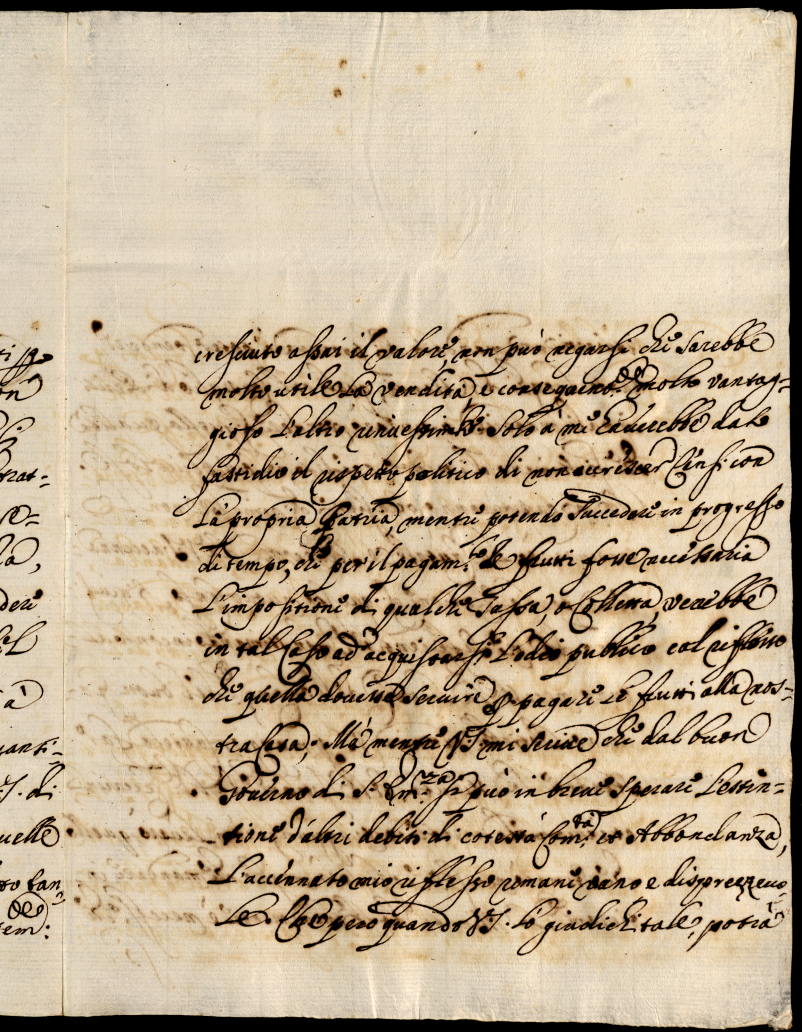 cresciuto assai il valore, non può negarsi che sarebbe
molto utile la vendita, e conseguentem.te molto vantag-
gioso l'altro rinvestim.to. Solo à me haverebbe dato
fastidio il rispetto politico di non accrescer Censi con
la propria Patria, mentre potendo succedere in progresso
di tempo, che per il pagam.to de frutti fosse necessaria
l'impositione di qualche Tassa, o Colletta, verebbe
in tal Caso ad acquistarsi l'odio publico col riflesso
che quella dovesse servire p pagare li frutti alla nos-
tra Casa; Mà mentre VS. mi scrive che dal buon
Governo di S. Em.za si può in breve sperare l'estin-
tione d'altri debiti di cotesta Com.tà et Abbondanza,
L'accennato mio riflesso rimane vano e disprezzevo-
le. Che però quando VS. lo giudichi tale, potrà
ti p
on
trat-
se-
la,
dere
del
a
quanti-
VS. di
uelle
to tan
tem: